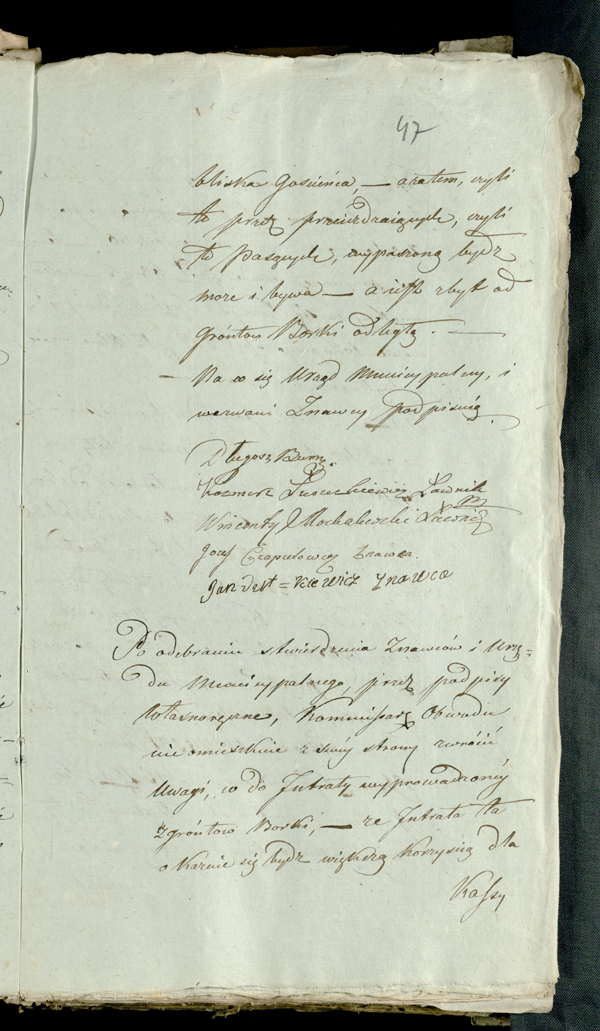 47
bliska Gościeńca, — a zatem, czyli
to przez przeieżdzaiących, czyli
to Pasących, wypaszoną bydź
może i bywa — a iest zbyt od
Gróntow Borki odległą. —
Na co się Urząd Municypalny, i
wezwani Znawcy podpisuią.
Długosz Burm.
Kazmierz Łuszczkiewicz Ławnik
Wincenty Mochalewski Ławnik
Józef Czapułowicz Znawca.
Jan = kiewicz Znawca
Po odebraniu stwierdzenia Znawców i Urzę=
du Municypalnego, przez podpisy
własnoręczne, Kommissarz Obwodu
nie omieszkuie z swéy strony zwrócić
Uwagi, co do Intraty wyprowadzonéy
z gróntow Borki, — że Intrata ta
okaznie się bydź większą korzyscią dla
Kassy